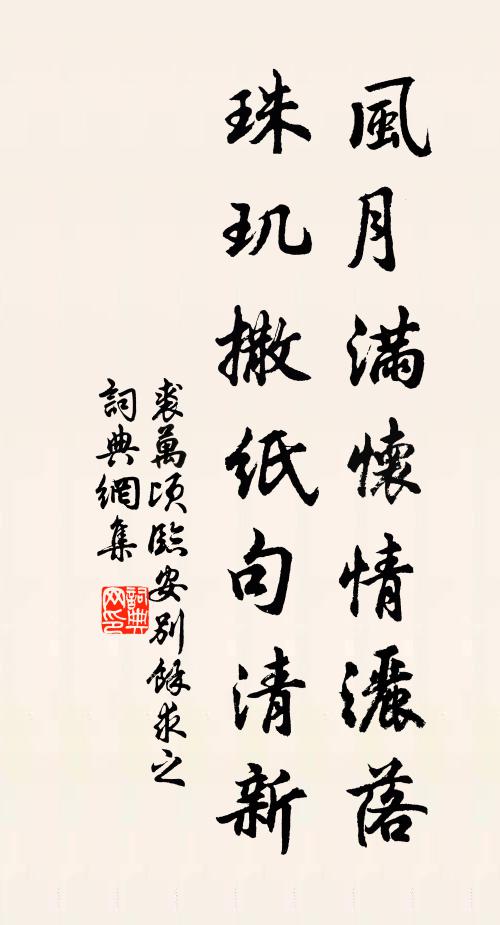 風月滿懷情灑落
珠玑撒纸句清新
裘萬頃臨安別餘求之
詞典網集
詞典网印